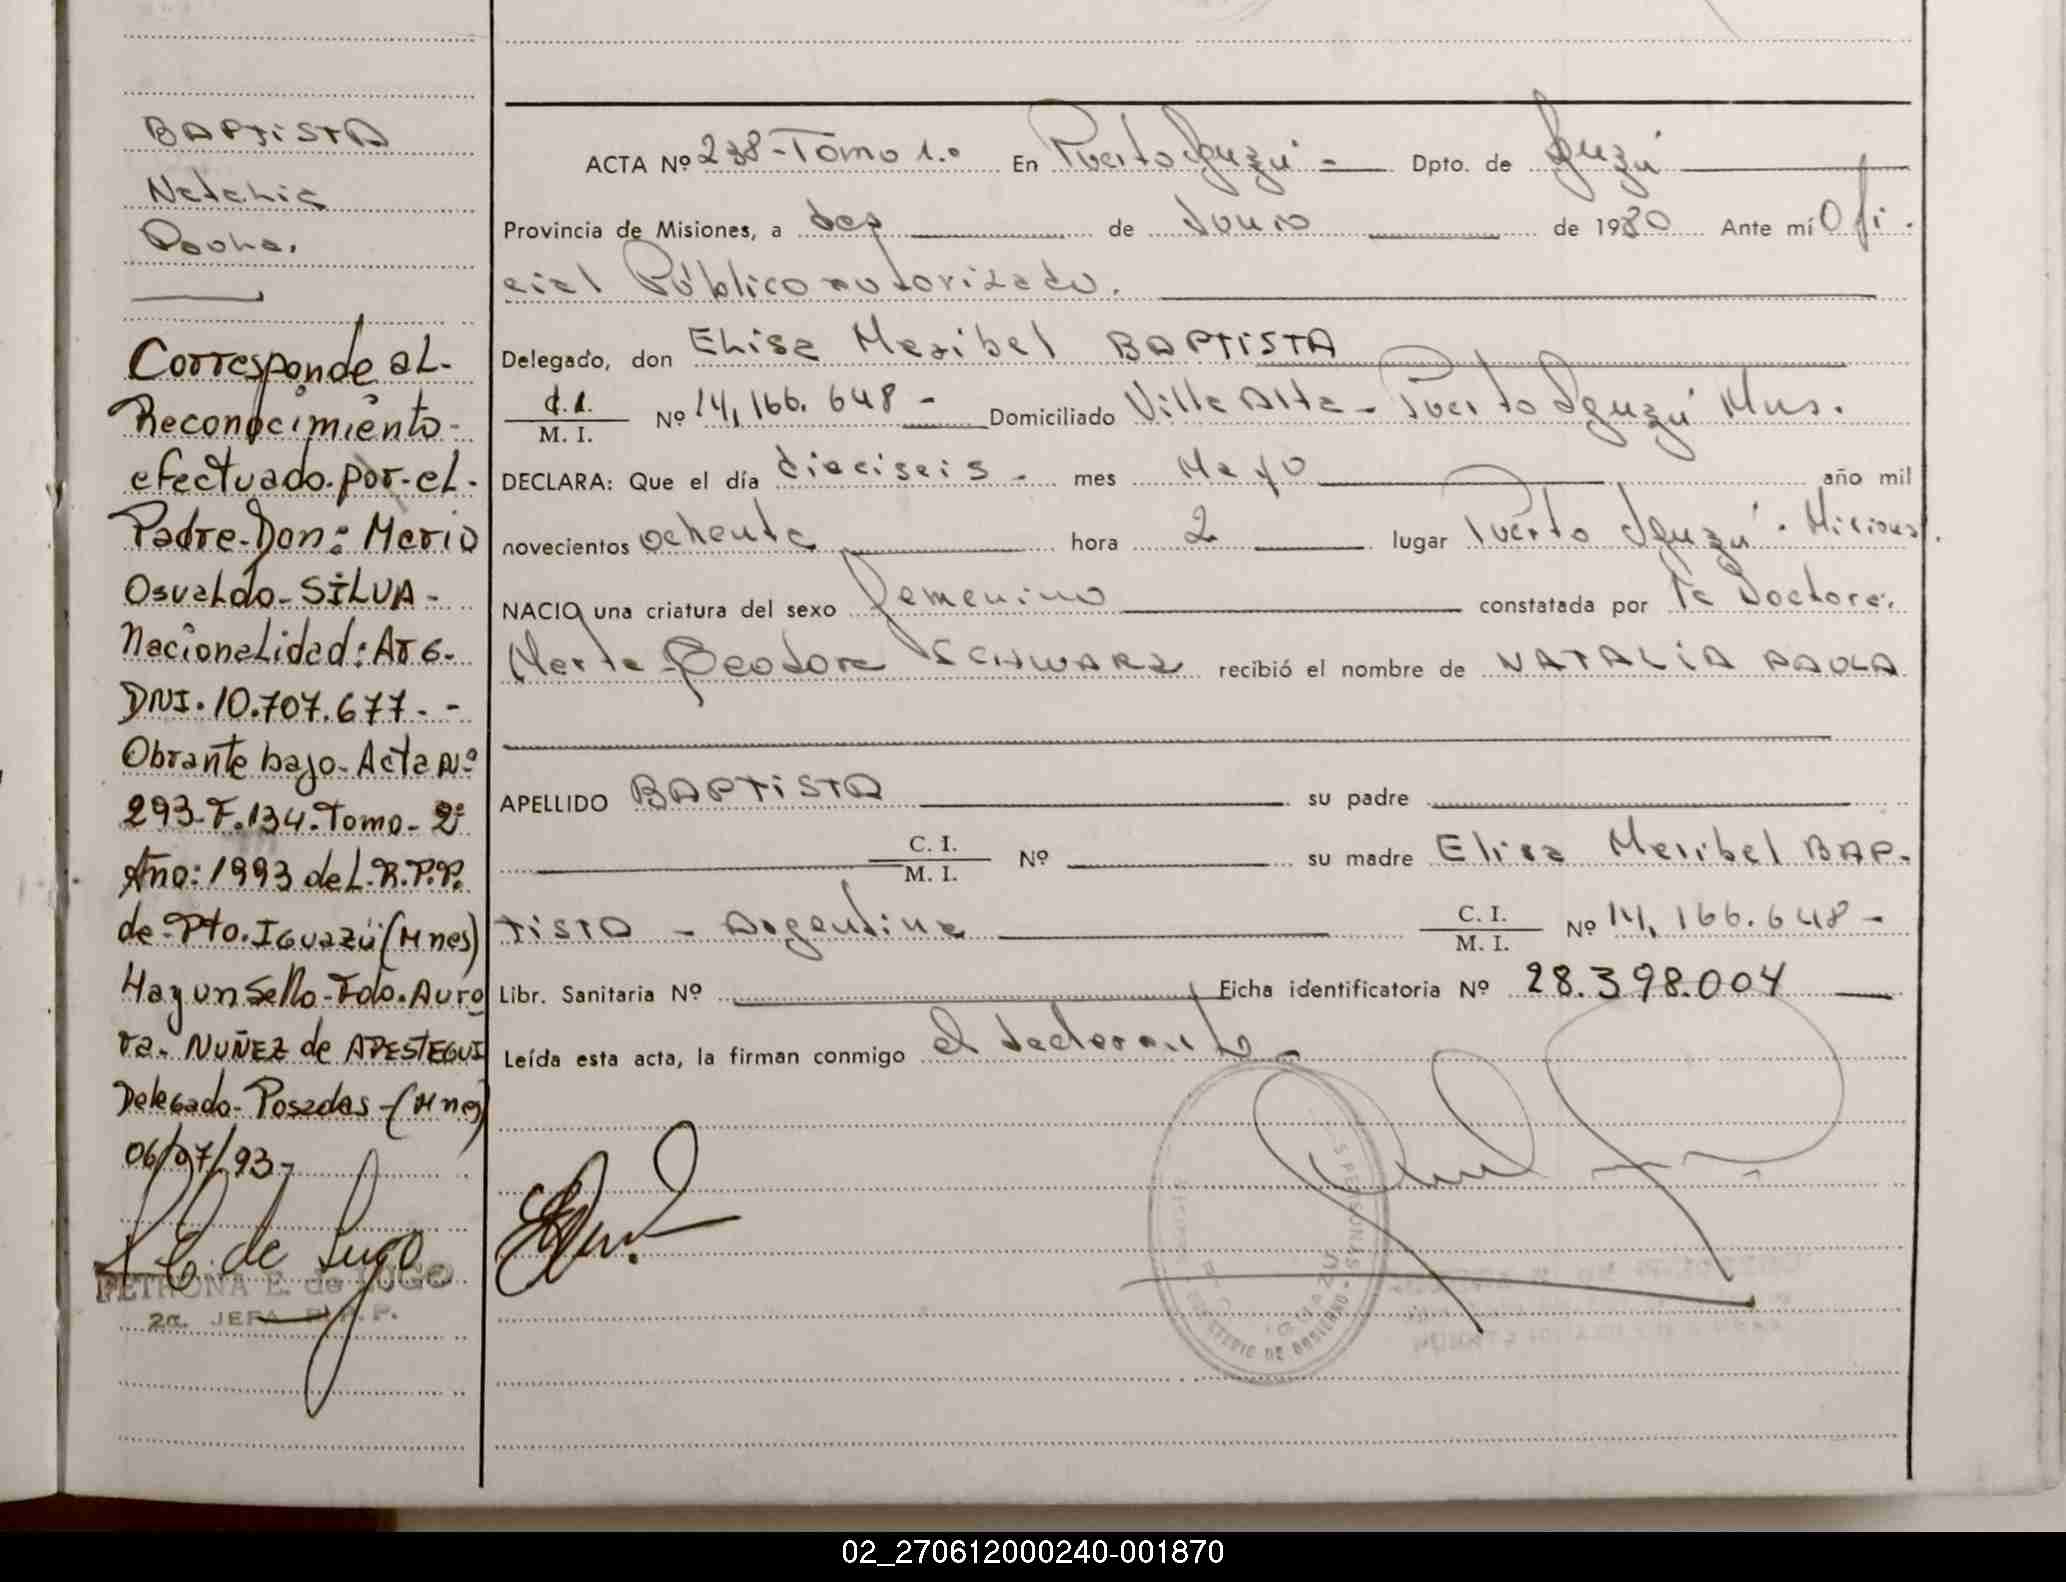 BAPTISTA
Natalia
Paola.
Corresponde al-
Reconocimiento-
efectuado-por-el-
Padre-Don: Mario
Osvaldo-SILVA-
Nacionalidad: ARG-
DNI. 10.707.677.--
Obrante bajo-Acta Nº
293-F.134.Tomo-2º
Año: 1993 del.R.P.P.
de-Pto.Iguazú (Mnes)
Hay un Sello-Fdo.Auro
ra-NUÑEZ de APESTEGUI
Delegado-Posadas-(Mnes)
06/07/93-
P E. de Lugo
PETRONA E. de LUGO
2a. JEFA R.P.P.
ACTA Nº 238-Tomo 1.º En Puerto Iguazú - Dpto. de Iguazú
Provincia de Misiones, a dos de Junio de 1980 Ante mí Ofi-
cial Público autorizado.
Delegado, don Elisa Maribel BAPTISTA
C.I.
M. I. Nº 14,166.648- Domiciliado Villa Alta-Puerto Iguazú Mnes.
DECLARA: Que el día dieciseis - mes Mayo año mil
novecientos ochenta hora 2 lugar Puerto Iguazú-Misiones.
NACIO una criatura del sexo femenino constatada por la Doctora.
Marta Teodora SCHWARZ recibió el nombre de NATALIA PAOLA
APELLIDO BAPTISTA su padre
C. I.
M. I. Nº su madre Elisa Maribel BAP-
TISTA - Argentina C. I.
M. I. Nº 14,166.648-
Libr. Sanitaria Nº Ficha identificatoria Nº 28.398.004
Leída esta acta, la firman conmigo el declarante-
02_270612000240-001870